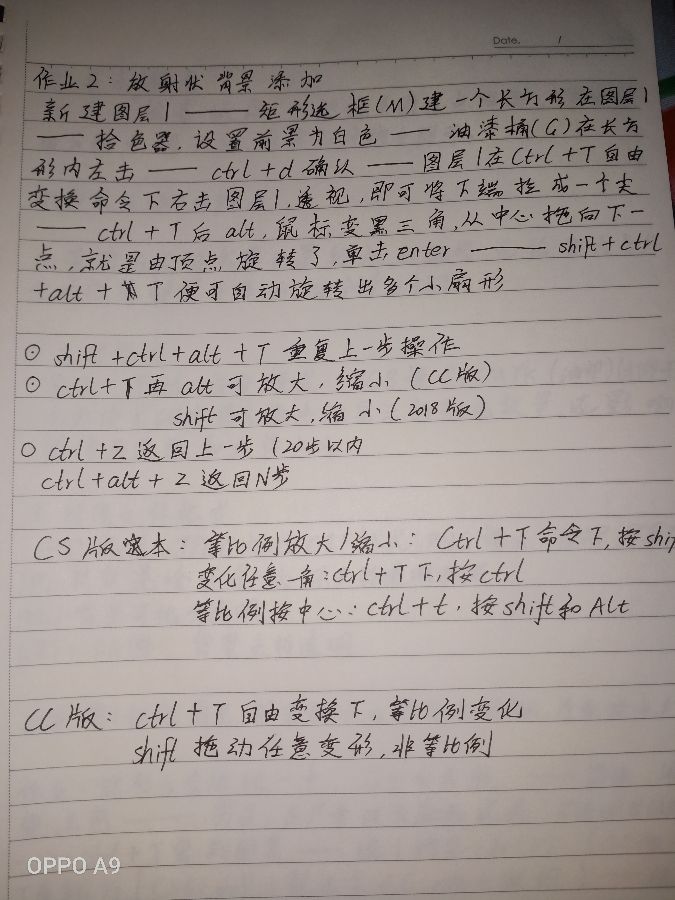 Date. /
作业2：放射状背景添加
新建图层1 —— 矩形选框(M)建一个长方形在图层1
—— 拾色器，设置前景为白色 —— 油漆桶(G)在长方
形内左击 —— ctrl+d确认 —— 图层1在Ctrl+T自由
变换命令下右击图层1，透视，即可将下端拉成一个尖
—— ctrl+T后alt，鼠标变黑三角，从中心拖向下一
点，就是由顶点旋转了，单击enter —— shift+ctrl
+alt+T便可自动旋转出多个小扇形
⊙ shift+ctrl+alt+T重复上一步操作
⊙ ctrl+T再alt可放大，缩小（CC版）
shift可放大，缩小（2018版）
○ ctrl+Z返回上一步（20步以内
ctrl+alt+Z返回N步
CS版本：等比例放大/缩小：Ctrl+T命令下，按shif
变化任意一角：ctrl+T下，按ctrl
等比例按中心：ctrl+t，按shift和Alt
CC版：ctrl+T自由变换下，等比例变化
shift拖动任意变形，非等比例
OPPO A9